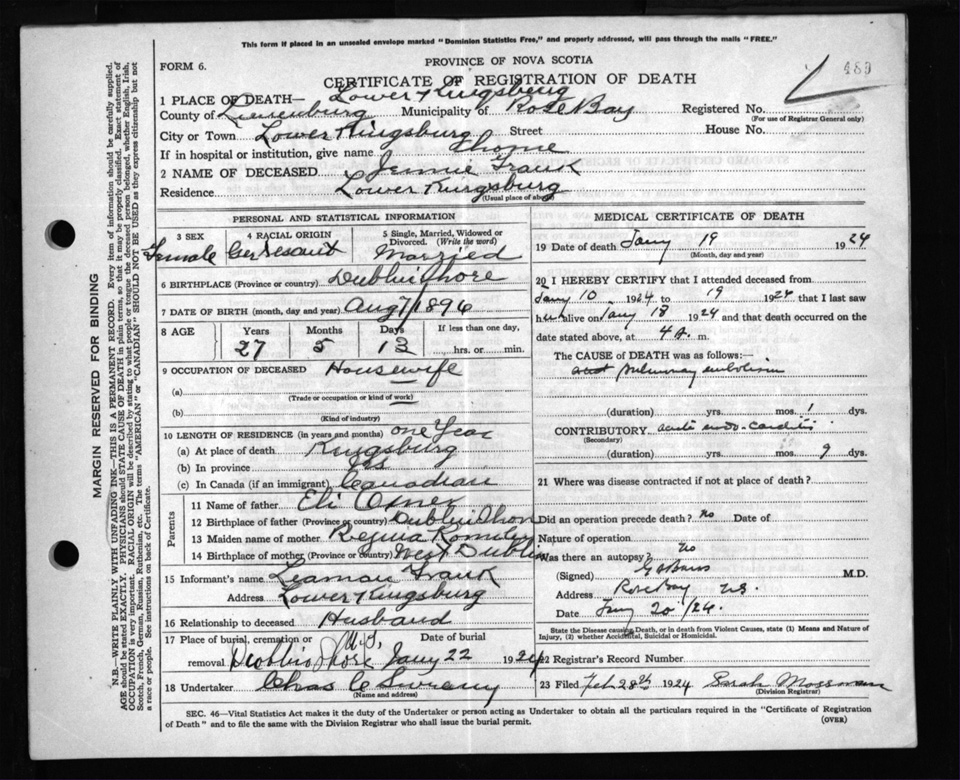 This form if placed in an unsealed envelope marked "Dominion Statistics Free," and properly addressed, will pass through the mails "FREE."
FORM 6.
PROVINCE OF NOVA SCOTIA
CERTIFICATE OF REGISTRATION OF DEATH
489
1 PLACE OF DEATH— Lower Kingsburg
County of Lunenburg Municipality of Rose Bay Registered No.
(For use of Registrar General only)
City or Town Lower Kingsburg Street House No.
If in hospital or institution, give name home
2 NAME OF DECEASED Jennie Frank
Residence Lower Kingsburg
(Usual place of abode)
PERSONAL AND STATISTICAL INFORMATION
3 SEX 4 RACIAL ORIGIN 5 Single, Married, Widowed or Divorced. (Write the word)
Female Ger Desant Married
6 BIRTHPLACE (Province or country) Dublin Shore
7 DATE OF BIRTH (month, day and year) Aug 7/1896
8 AGE Years Months Days If less than one day,
27 5 13 hrs. or min.
9 OCCUPATION OF DECEASED Housewife
(a)
(Trade or occupation or kind of work)
(b)
(Kind of industry)
10 LENGTH OF RESIDENCE (in years and months) one Year
(a) At place of death Kingsburg
(b) In province
(c) In Canada (if an immigrant) Canadian
Parents
11 Name of father Eli
12 Birthplace of father (Province or country) Dublin Shore
13 Maiden name of mother Regina Romkey
14 Birthplace of mother (Province or country) West Dublin
15 Informant's name Leaman Frank
Address Lower Kingsburg
16 Relationship to deceased Husband
17 Place of burial, cremation or removal Dublin Shore N.S. Date of burial Jany 22 1924
18 Undertaker Chas C Swany
(Name and address)
MEDICAL CERTIFICATE OF DEATH
19 Date of death Jany 19 1924
(Month, day and year)
20 I HEREBY CERTIFY that I attended deceased from
Jany 10 1924 to 19 1924 that I last saw
her alive on Jany 18 1924 and that death occurred on the
date stated above, at 4 a. m.
The CAUSE OF DEATH was as follows:—
pulmonary embolism
(duration) yrs. mos. 1 dys.
CONTRIBUTORY acute endo-carditis
(Secondary)
(duration) yrs. mos. 9 dys.
21 Where was disease contracted if not at place of death?
Did an operation precede death? no Date of
Nature of operation
Was there an autopsy? no
(Signed) M.D.
Address Rose Bay NS.
Date Jany 20/24.
State the Disease causing Death, or in death from Violent Causes, state (1) Means and Nature of Injury, (2) whether Accidental, Suicidal or Homicidal.
22 Registrar's Record Number
23 Filed Feb 28th 1924 Sarah Mossman
(Division Registrar)
SEC. 46—Vital Statistics Act makes it the duty of the Undertaker or person acting as Undertaker to obtain all the particulars required in the "Certificate of Registration
of Death" and to file the same with the Division Registrar who shall issue the burial permit.
(OVER)
MARGIN RESERVED FOR BINDING
N.B.—WRITE PLAINLY WITH UNFADING INK—THIS IS A PERMANENT RECORD. Every item of information should be carefully supplied.
AGE should be stated EXACTLY. PHYSICIANS should STATE CAUSE OF DEATH in plain terms, so that it may be properly classified. Exact statement of
OCCUPATION is very important. RACIAL ORIGIN will be described by stating to what people or tongue the deceased person belonged, whether English, Irish,
Scotch, French, German, Russian, Ruthenian, etc. The terms "AMERICAN" or "CANADIAN" SHOULD NOT BE USED as they express citizenship but not
a race or people. See instructions on back of Certificate.